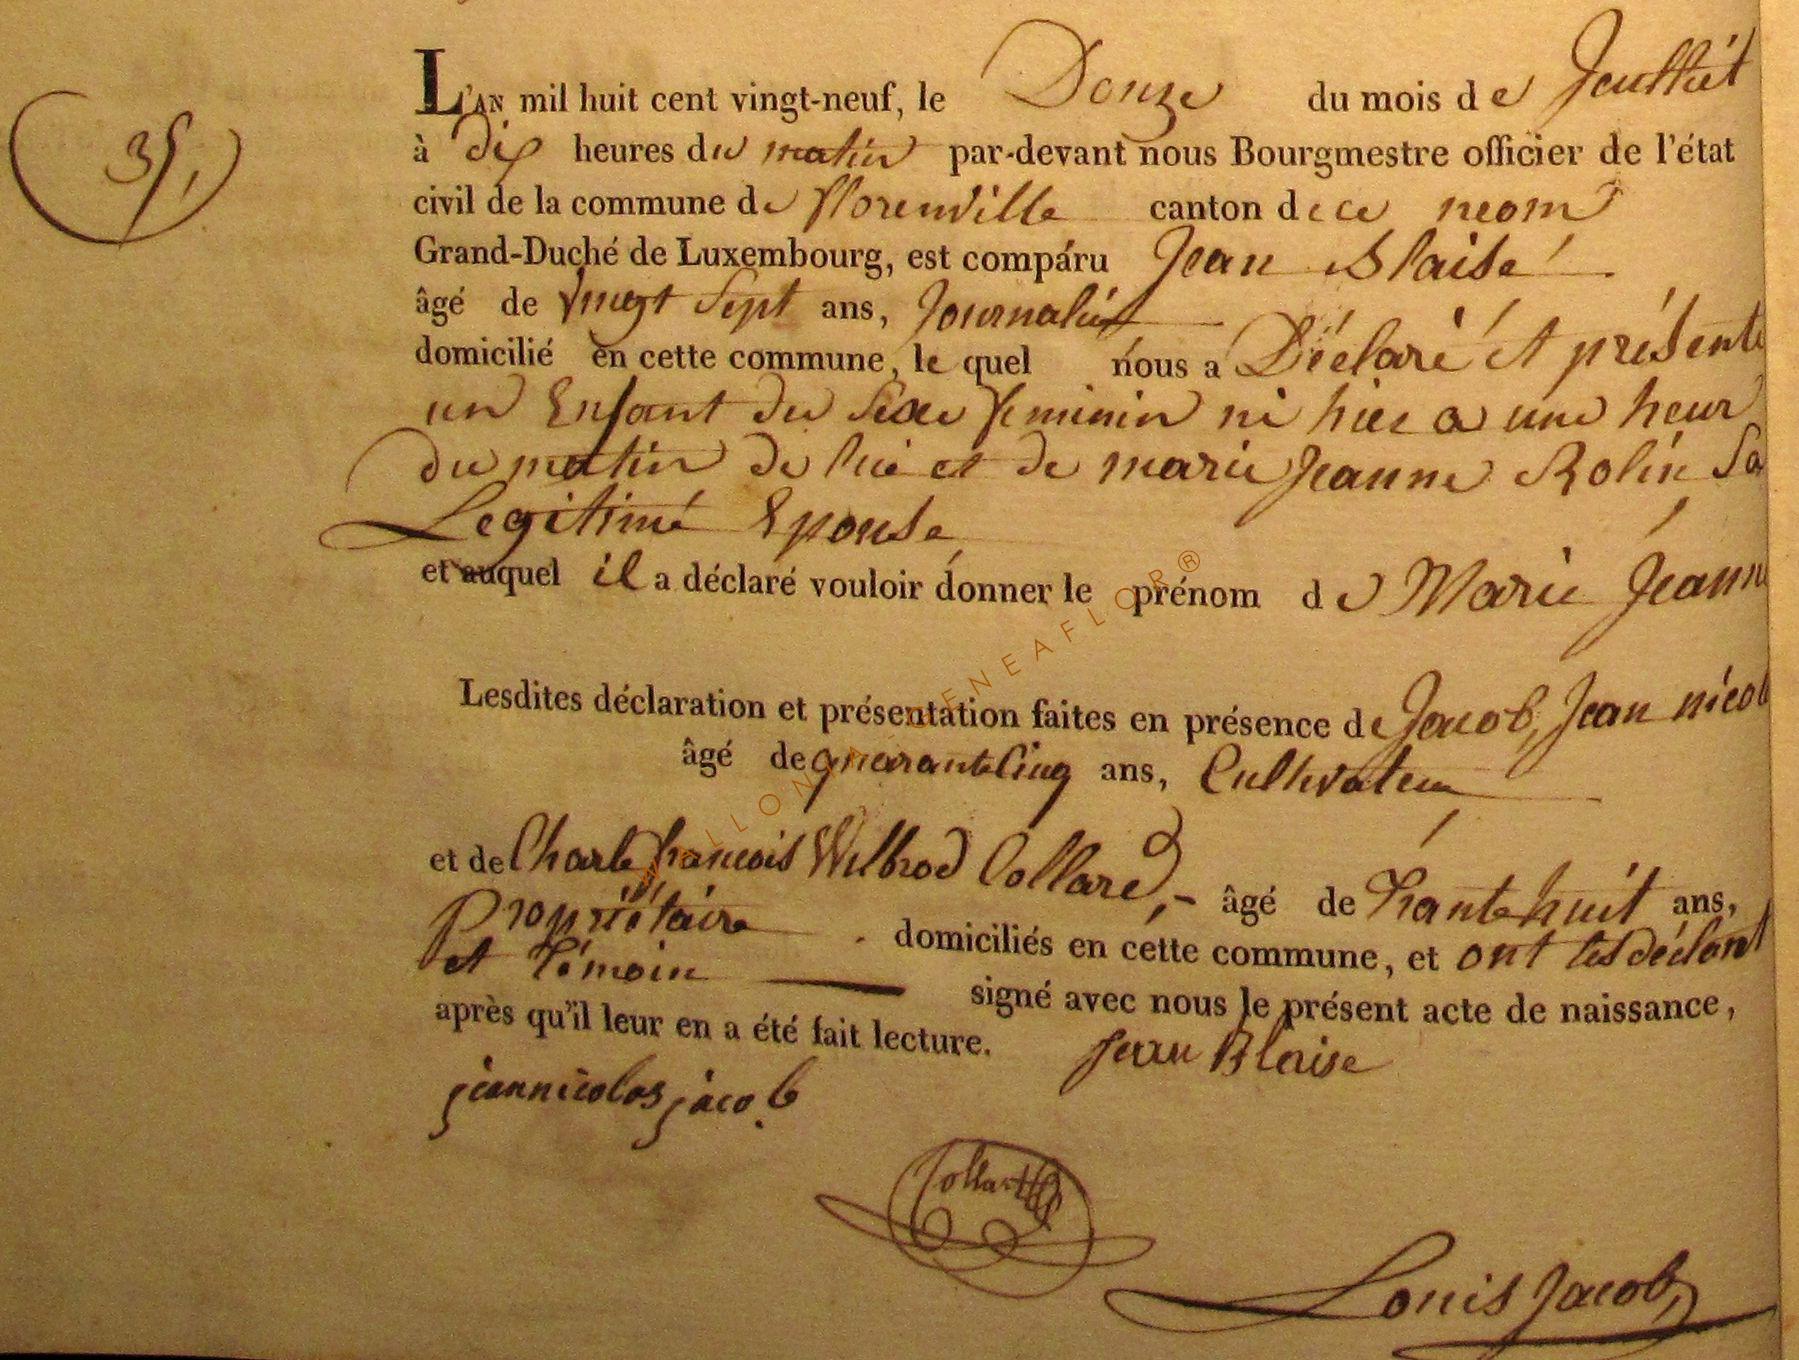 35,
L'AN mil huit cent vingt-neuf, le Douze du mois de Jeulliét
à dix heures du matin par-devant nous Bourgmestre officier de l'état
civil de la commune de florenville canton de ce neom
Grand-Duché de Luxembourg, est comparu Jean Blaise
âgé de vingt Sept ans, Journaliér
domicilié en cette commune, le quel nous a Déclaré et présenté
un Enfant du Sexe feminin né hier a une heur
du matin de lui et de marie Jeanne Rolin Sa
Legitime Epouse
et auquel il a déclaré vouloir donner le prénom de Marie Jeanne
Lesdites déclaration et présentation faites en présence de Jacob, Jean nicol
âgé de quarante Cinq ans, Cultivateur
et de Charle francois Wilbrod Collard, - âgé de trante huit ans,
Propriétaire domiciliés en cette commune, et ont les déclant
et témoin signé avec nous le présent acte de naissance,
après qu'il leur en a été fait lecture. Jean Blaise
jeannicolas jacob
Collard
Louis Jacob
WALLONIA GENEAFLOR®